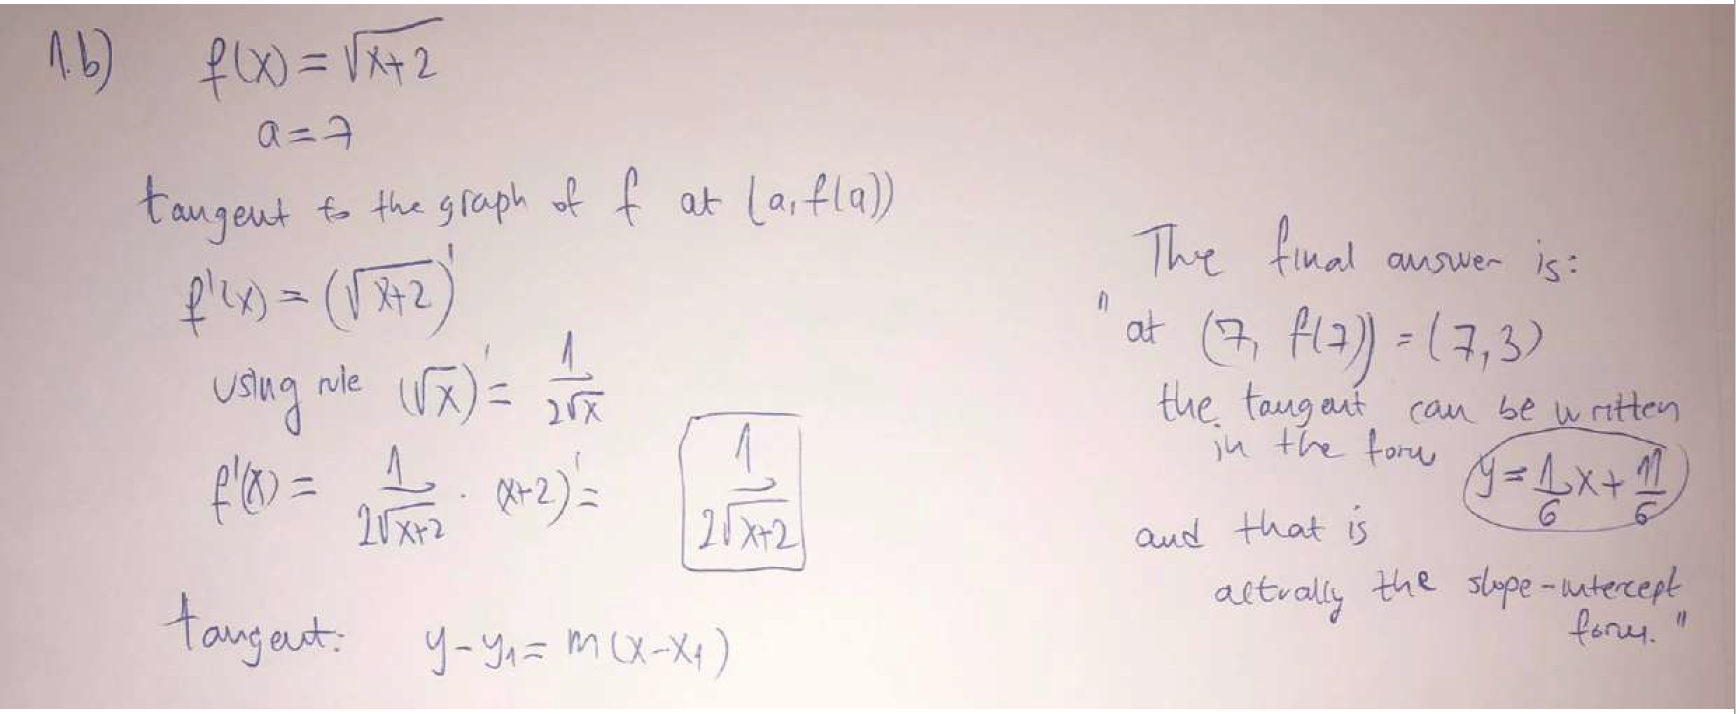 1.b) f(x) = √(x+2)
a = 7
tangent to the graph of f at (a, f(a))
f'(x) = (√(x+2))'
using rule (√x)' = 1/(2√x)
f'(x) = 1/(2√(x+2)) · (x+2)' = 1/(2√(x+2))
tangent: y - y₁ = m(x - x₁)
The final answer is:
" at (7, f(7)) = (7, 3)
the tangent can be written
in the form y = 1/6 x + 11/6
and that is
actually the slope-intercept
form. "